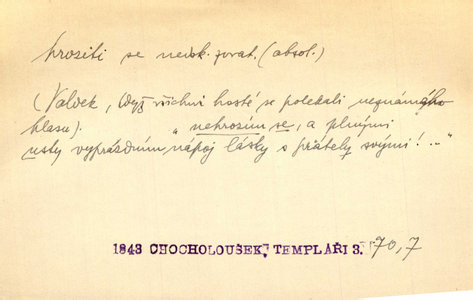 hroziti se nedok. zvrat. (absol.)
(Valdek, když všichni hosté se polekali neznámého
hlasu). „nehrozím se, a plnými
usty vyprázdním nápoj lásky s přátely svými! .."
1843 CHOCHOLOUŠEK, TEMPLÁŘI 3. 70,7